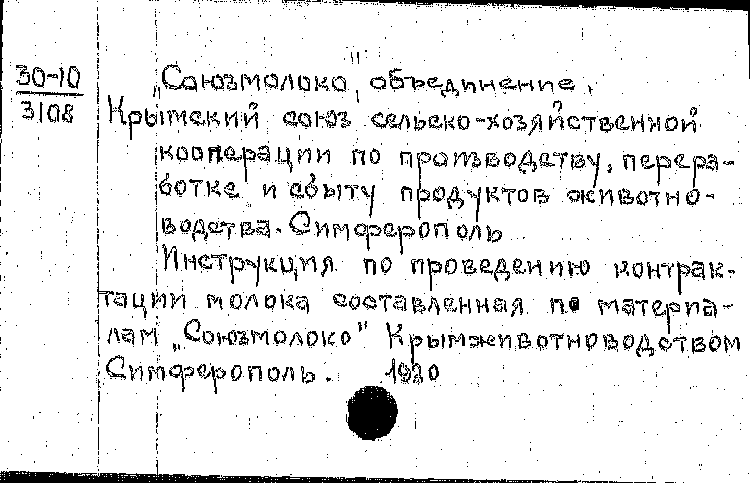 30-10
3108
„Союзмолоко" объединение.
Крымский союз сельско-хозяйственной
кооперации по производству, перера-
ботке и сбыту продуктов животно-
водства. Симферополь
Инструкция по проведению контрак-
тации молока составленная по материа-
лам „Союзмолоко" Крымживотноводством
Симферополь. 1930